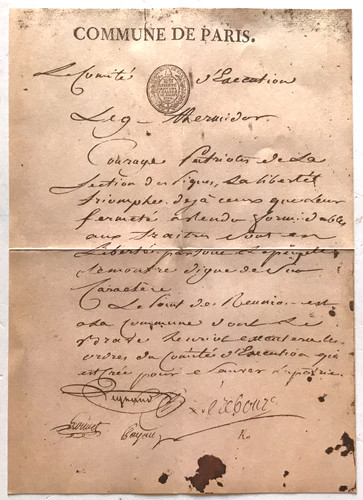 COMMUNE DE PARIS.
Le Comité d'Execution
Le 9 thermidor
Courage Patriotes de la
Section des piques, la liberté
triomphe deja ceux que leur
fermeté a rendu formidables
aux traitres sont en
Liberté partout le peuple
se montre digne de son
Caractère
Le Point de Reunion est
a la Commune dont le
brave henriot executera les
ordres du Comité d'Execution qui
est créé pour sauver la patrie.
Legrand
Louvet Payan Lerebours
R